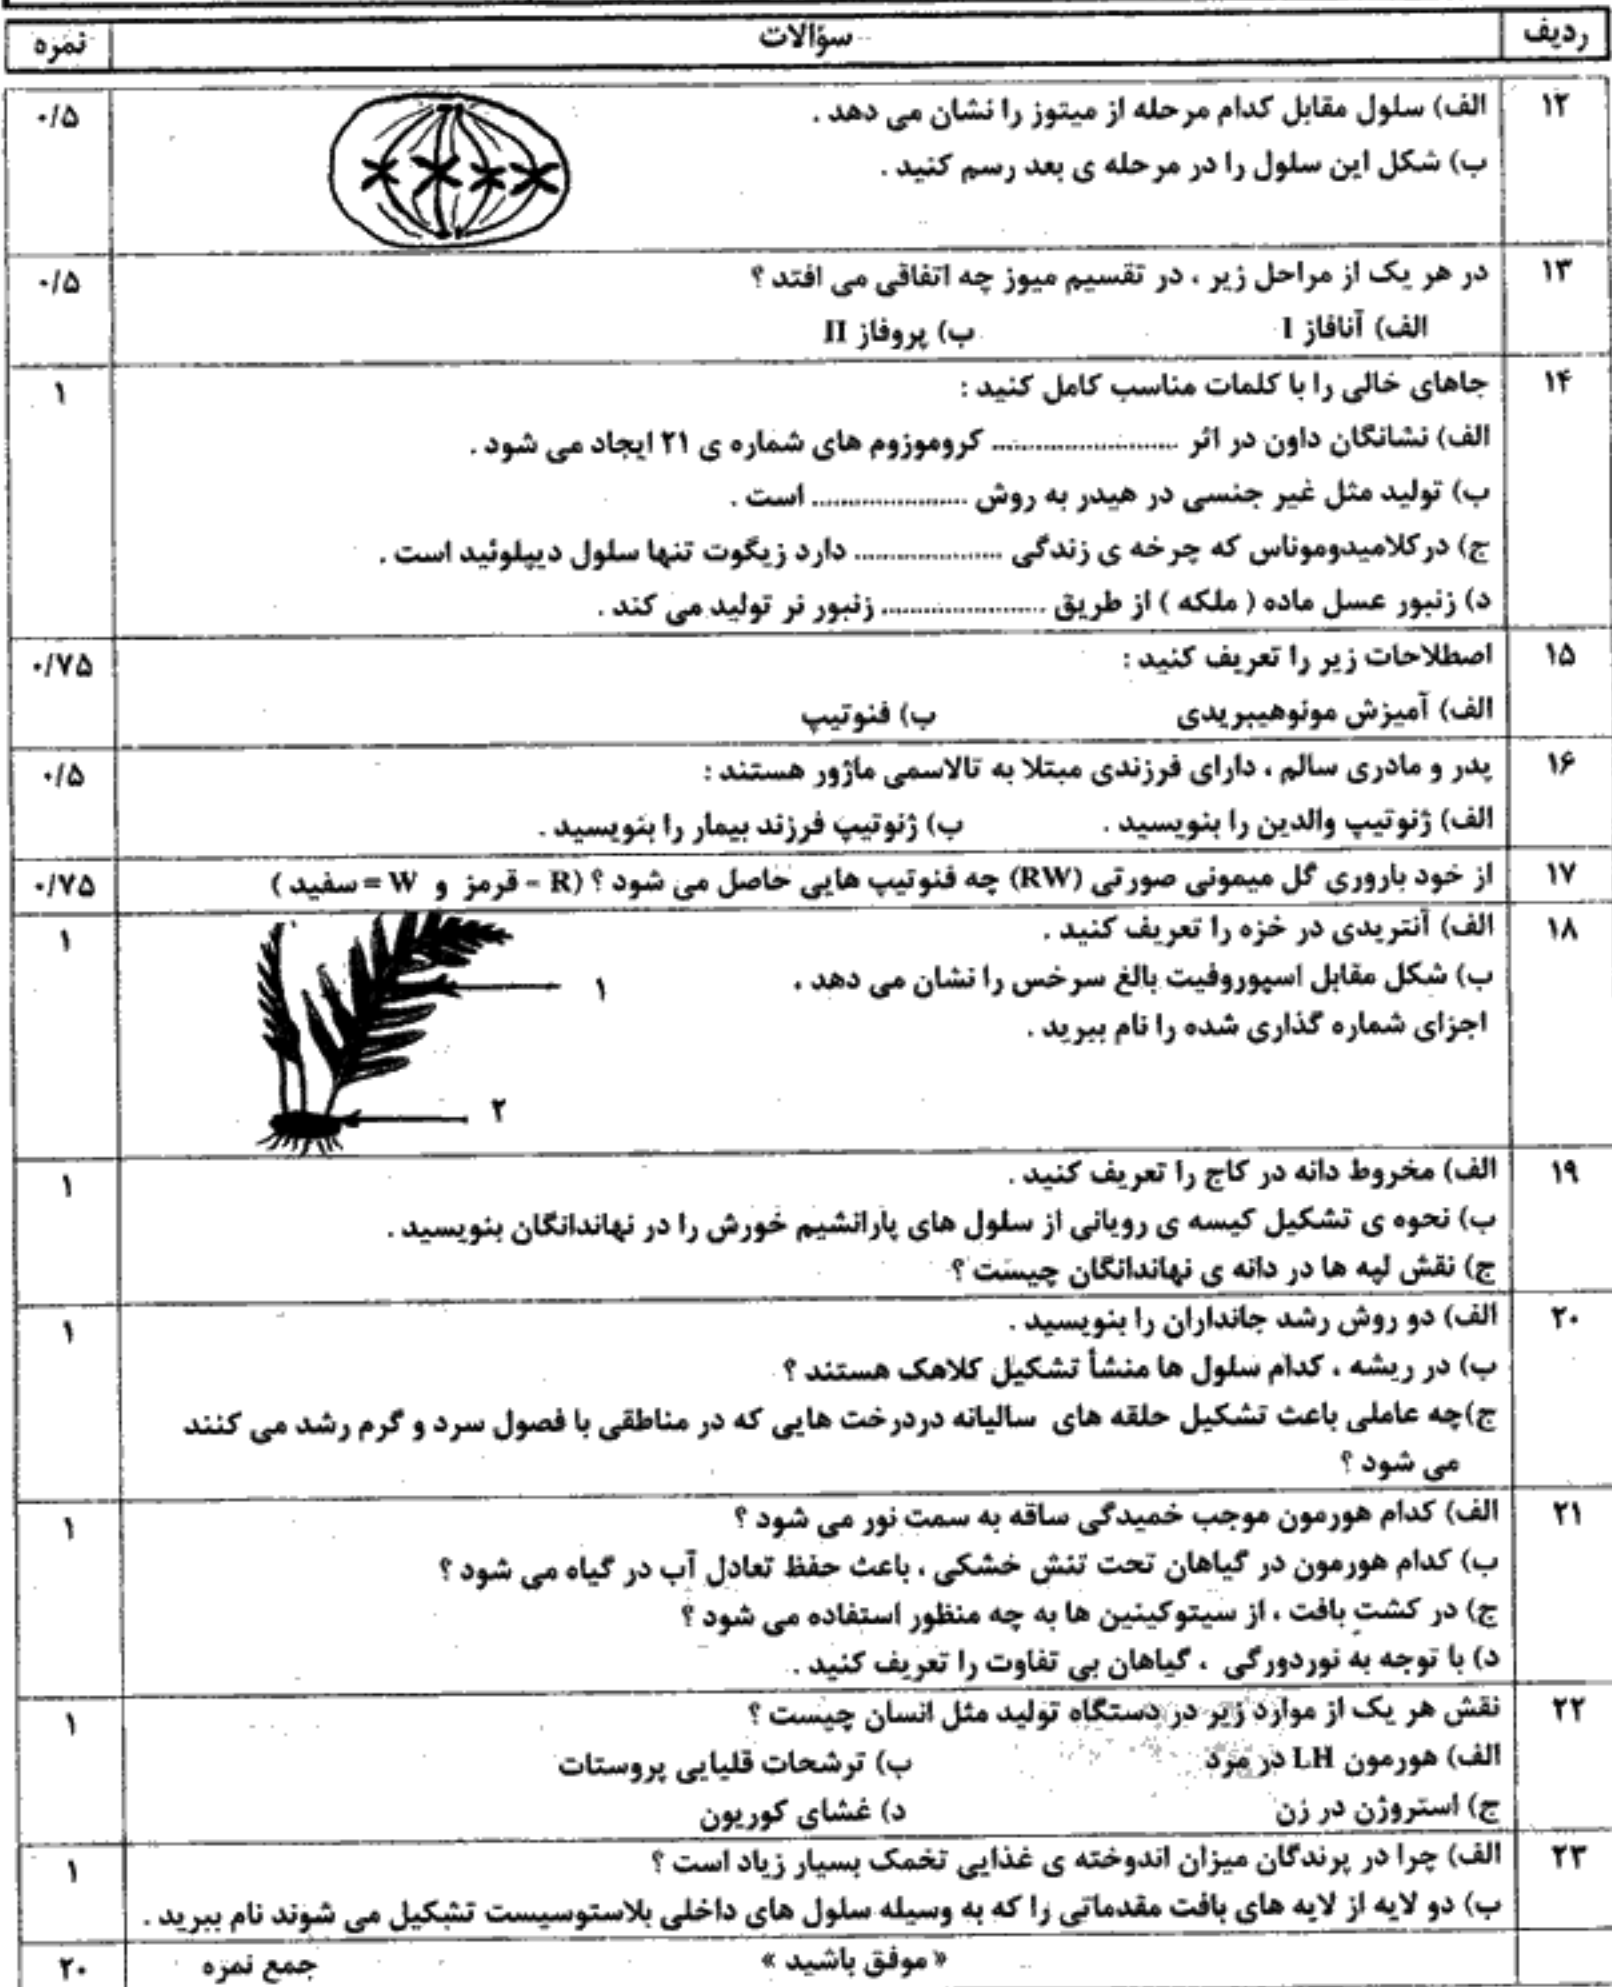 ردیف سؤالات نمره
۱۲ الف) سلول مقابل کدام مرحله از میتوز را نشان می دهد . ۰/۵
ب) شکل این سلول را در مرحله ی بعد رسم کنید .
۱۳ در هر یک از مراحل زیر ، در تقسیم میوز چه اتفاقی می افتد ؟ ۰/۵
الف) آنافاز I ب) پروفاز II
۱۴ جاهای خالی را با کلمات مناسب کامل کنید : ۱
الف) نشانگان داون در اثر ........................ کروموزوم های شماره ی ۲۱ ایجاد می شود .
ب) تولید مثل غیر جنسی در هیدر به روش .................... است .
ج) درکلامیدوموناس که چرخه ی زندگی ................... دارد زیگوت تنها سلول دیپلوئید است .
د) زنبور عسل ماده ( ملکه ) از طریق ..................... زنبور نر تولید می کند .
۱۵ اصطلاحات زیر را تعریف کنید : ۰/۷۵
الف) آمیزش مونوهیبریدی ب) فنوتیپ
۱۶ پدر و مادری سالم ، دارای فرزندی مبتلا به تالاسمی ماژور هستند : ۰/۵
الف) ژنوتیپ والدین را بنویسید . ب) ژنوتیپ فرزند بیمار را بنویسید .
۱۷ از خود باروری گل میمونی صورتی (RW) چه فنوتیپ هایی حاصل می شود ؟ (R = قرمز و W = سفید ) ۰/۷۵
۱۸ الف) آنتریدی در خزه را تعریف کنید . ۱
ب) شکل مقابل اسپوروفیت بالغ سرخس را نشان می دهد ، ۱
اجزای شماره گذاری شده را نام ببرید .
۲
۱۹ الف) مخروط دانه در کاج را تعریف کنید . ۱
ب) نحوه ی تشکیل کیسه ی رویانی از سلول های پارانشیم خورش را در نهاندانگان بنویسید .
ج) نقش لپه ها در دانه ی نهاندانگان چیست ؟
۲۰ الف) دو روش رشد جانداران را بنویسید . ۱
ب) در ریشه ، کدام سلول ها منشأ تشکیل کلاهک هستند ؟
ج)چه عاملی باعث تشکیل حلقه های سالیانه دردرخت هایی که در مناطقی با فصول سرد و گرم رشد می کنند
می شود ؟
۲۱ الف) کدام هورمون موجب خمیدگی ساقه به سمت نور می شود ؟ ۱
ب) کدام هورمون در گیاهان تحت تنش خشکی ، باعث حفظ تعادل آب در گیاه می شود ؟
ج) در کشت بافت ، از سیتوکینین ها به چه منظور استفاده می شود ؟
د) با توجه به نوردورگی ، گیاهان بی تفاوت را تعریف کنید .
۲۲ نقش هر یک از موارد زیر در دستگاه تولید مثل انسان چیست ؟ ۱
الف) هورمون LH در مرد ب) ترشحات قلیایی پروستات
ج) استروژن در زن د) غشای کوریون
۲۳ الف) چرا در پرندگان میزان اندوخته ی غذایی تخمک بسیار زیاد است ؟ ۱
ب) دو لایه از لایه های بافت مقدماتی را که به وسیله سلول های داخلی بلاستوسیست تشکیل می شوند نام ببرید .
« موفق باشید » جمع نمره ۲۰